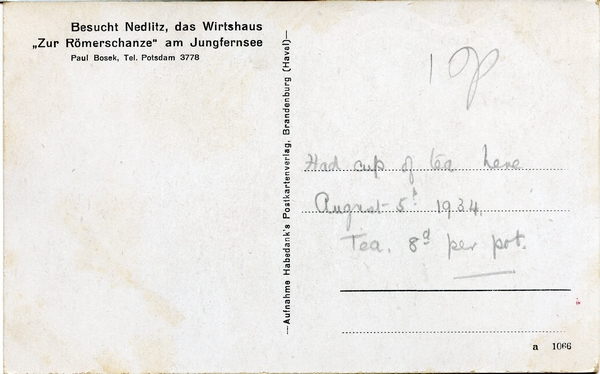 Besucht Nedlitz, das Wirtshaus
„Zur Römerschanze" am Jungfernsee
Paul Bosek, Tel. Potsdam 3778
—Aufnahme Habedank's Postkartenverlag, Brandenburg (Havel)—
Had cup of tea here
August 5t 1934.
Tea. 8d per pot.
a 1066